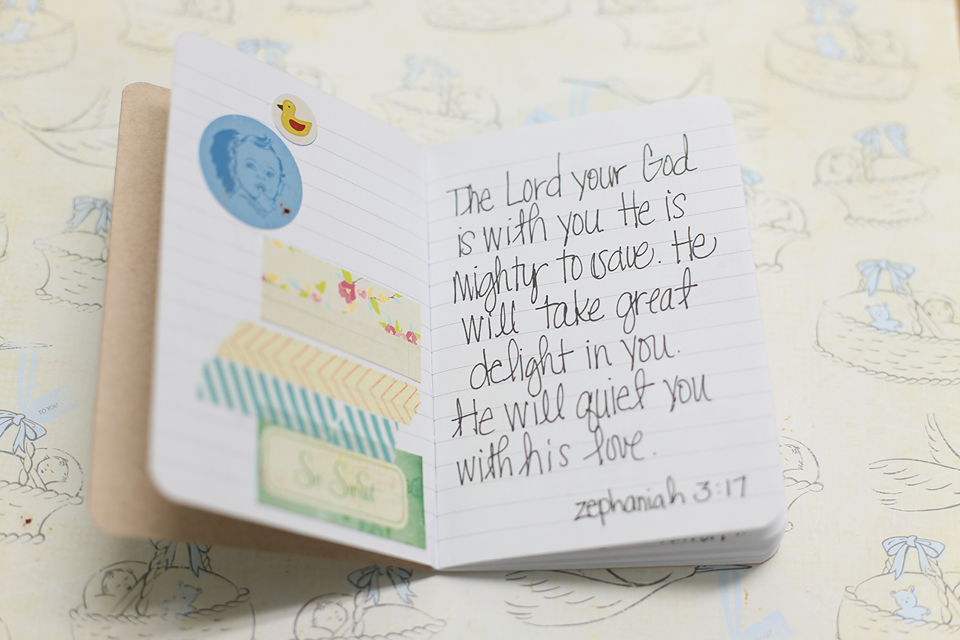 So Sweet
The Lord your God
is with you He is
mighty to save. He
will take great
delight in you.
He will quiet you
with his love.
zephaniah 3:17
TO YOU